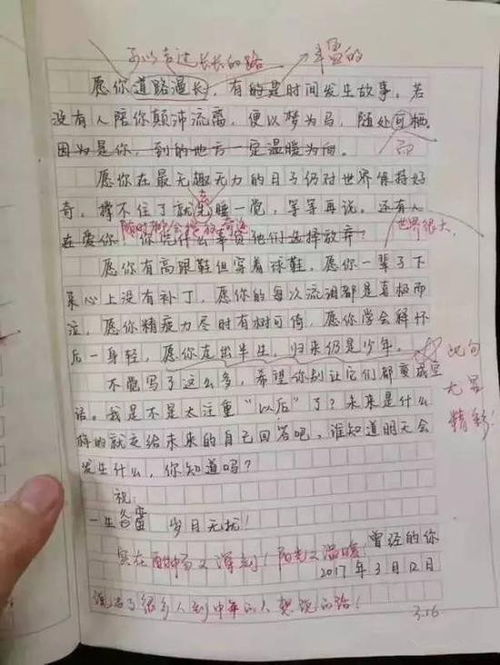 可以走过长长的路 丰富的
愿你道路漫长,有的是时间发生故事。若
没有人陪你颠沛流离,便以梦为马,随处可栖。
因为是你,到的地方一定温暖为向。 而
愿你在最无趣无力的日子仍对世界保持好
奇。撑不住了就先睡一觉,等等再说。还有人
在爱你 你凭什么事责他们选择放弃? 世界很大
愿你有高跟鞋但穿着球鞋,愿你一辈子下
来心上没有补丁,愿你的每次流泪都是喜极而
泣,愿你精疲力尽时有树可倚,愿你学会释怀
后一身轻,愿你走出半生,归来仍是少年。 此句
不能写了这么多,希望你别让它们都变成空 尤显
话。我是不是太注重“以后”了?未来是什么 精彩
样的就交给未来的自己回答吧,谁知道明天会
发生什么,你知道吗?
祝:
一生 岁月无扰!
实在 又深刻!阳光又温暖 曾经的你
2017年3月12日
说出了很多人到中年的人想说的话!
3.16